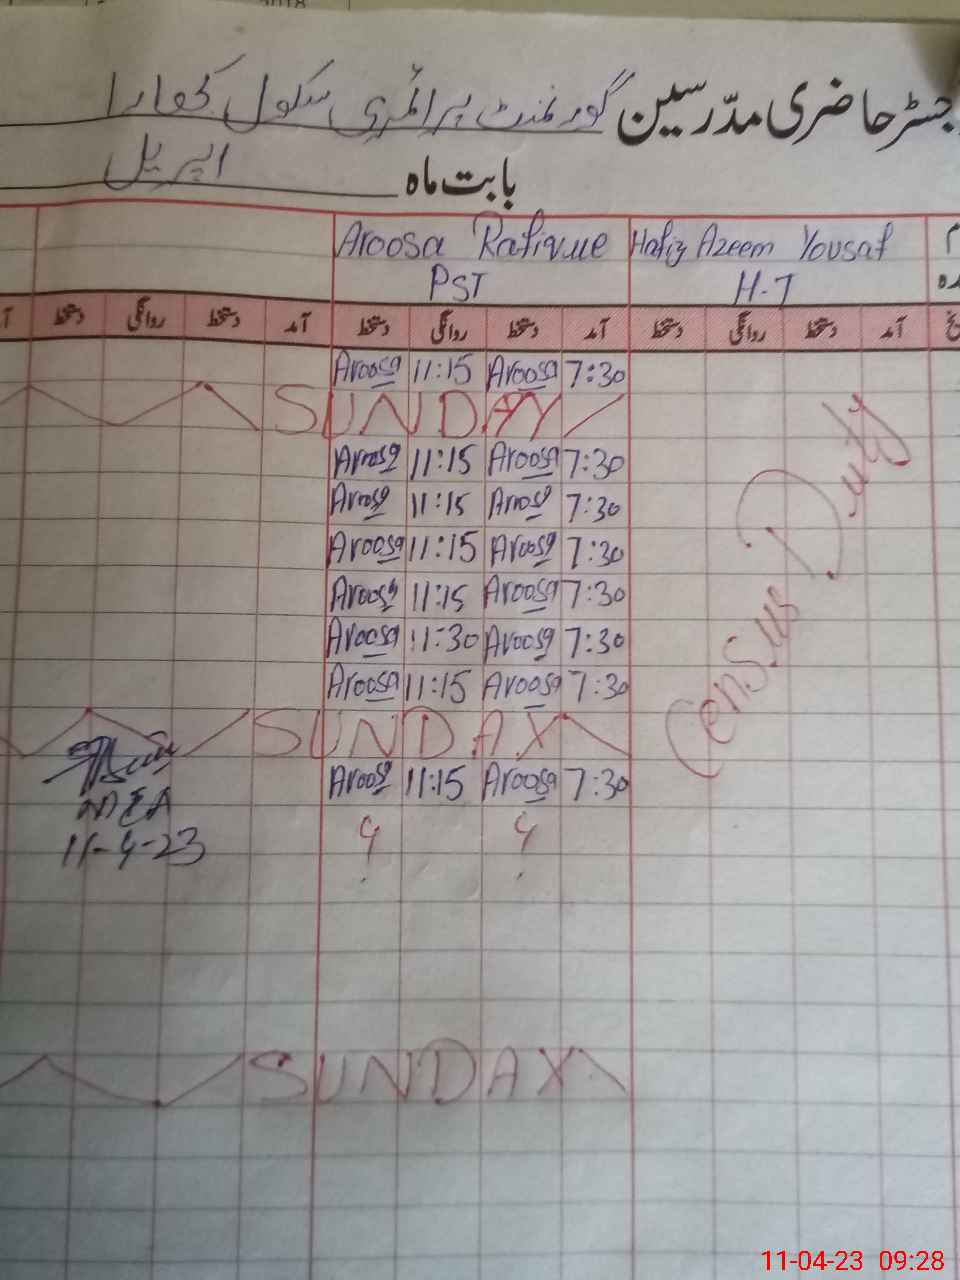 2018
جسٹر حاضری مدّرسین گورنمنٹ پرائمری سکول کٹھارا
بابت ماہ اپریل
Aroosa Rafique Hafiz Azeem Yousaf
PST H.T
دستخط روانگی دستخط آمد دستخط روانگی دستخط آمد دستخط روانگی دستخط آمد
Aroosa 11:15 Aroosa 7:30
SUNDAY
Aroosa 11:15 Aroosa 7:30
Aroosa 11:15 Aroosa 7:30
Aroosa 11:15 Aroosa 7:30
Aroosa 11:15 Aroosa 7:30
Aroosa 11:30 Aroosa 7:30
Aroosa 11:15 Aroosa 7:30
SUNDAY
Aroosa 11:15 Aroosa 7:30
Census Duty
MEA
11-4-23
SUNDAY
11-04-23 09:28